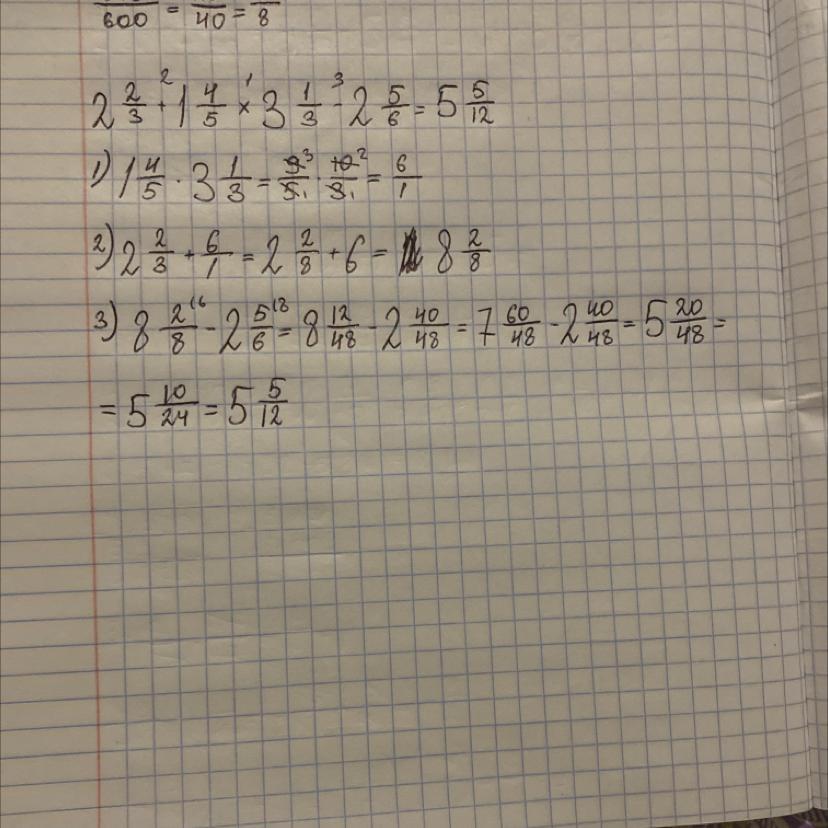 /600 = /40 = /8
2 2/3 + 1 4/5 × 3 1/3 - 2 5/6 = 5 5/12
1) 1 4/5 · 3 1/3 = 9/5 · 10/3 = 6/1
2) 2 2/3 + 6/1 = 2 2/8 + 6 = 8 2/8
3) 8 2/8 - 2 5/6 = 8 12/48 - 2 40/48 = 7 60/48 - 2 40/48 = 5 20/48 =
= 5 10/24 = 5 5/12